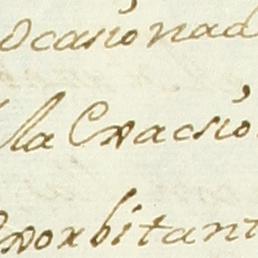 ocasionad
la Exacsio
Exorbitant